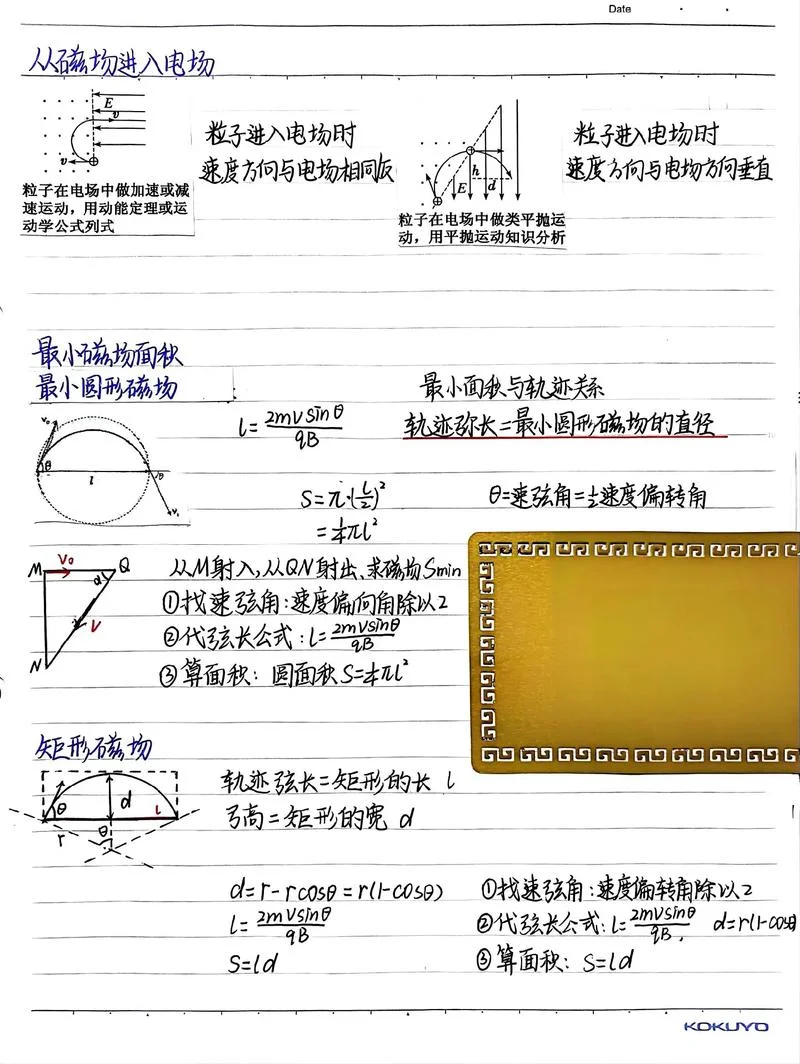 Date
从磁场进入电场
E
v
v
粒子在电场中做加速或减
速运动，用动能定理或运
动学公式列式
粒子进入电场时
速度方向与电场相同反
h
E
d
粒子在电场中做类平抛运
动，用平抛运动知识分析
粒子进入电场时
速度方向与电场方向垂直
最小磁场面积
最小圆形磁场
v₀
θ
l
θ
v₁
l=2mvsinθ/qB
最小面积与轨迹关系
轨迹弥长=最小圆形磁场的直径
S=π·(l/2)²
=¼πl²
θ=速弦角=½速度偏转角
M
V₀
Q
α
V
N
从M射入,从QN射出、求磁场Smin
①找速弦角:速度偏向角除以2
②代弦长公式:l=2mvsinθ/qB
③算面积: 圆面积S=¼πl²
矩形磁场
θ
d
l
r
θ
轨迹弦长=矩形的长 l
弓高=矩形的宽 d
d=r-rcosθ=r(1-cosθ)
l=2mvsinθ/qB
S=ld
①找速弦角:速度偏转角除以2
②代弦长公式:l=2mvsinθ/qB, d=r(1-cosθ)
③算面积: S=ld
KOKUYO